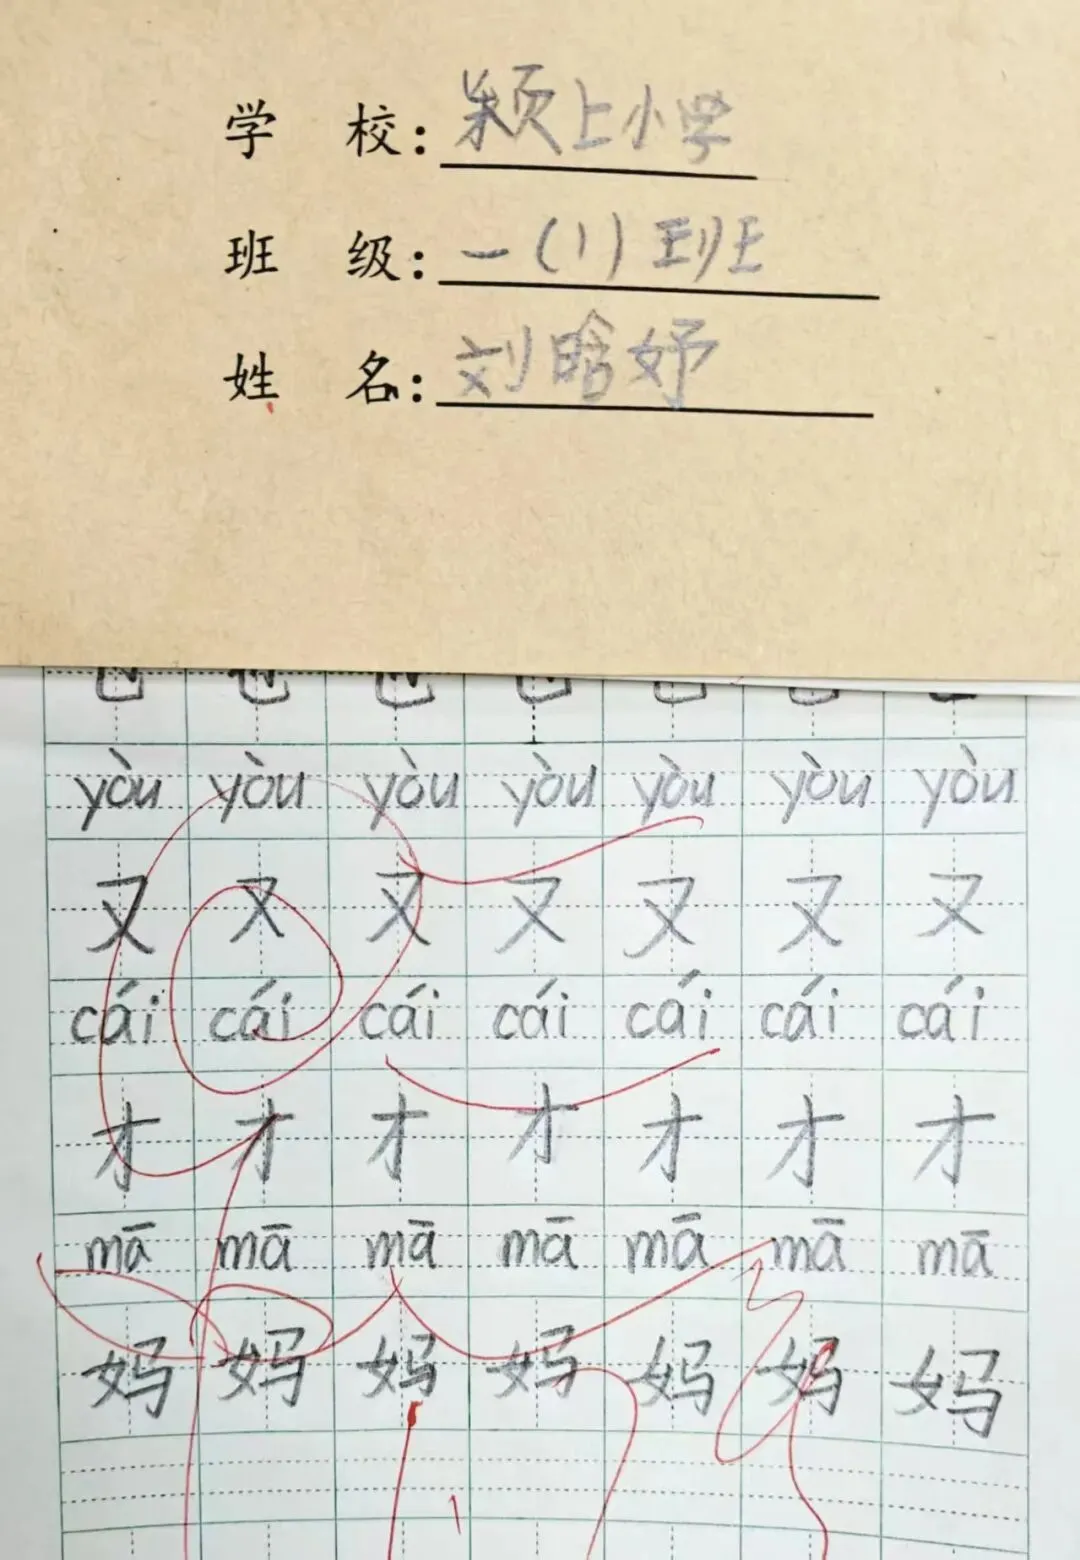 学 校: 颍上小学
班 级: 一(1)班
姓 名: 刘晗妤
yòu yòu yòu yòu yòu yòu yòu
又 又 又 又 又 又 又
cái cái cái cái cái cái cái
才 才 才 才 才 才 才
mā mā mā mā mā mā mā
妈 妈 妈 妈 妈 妈 妈